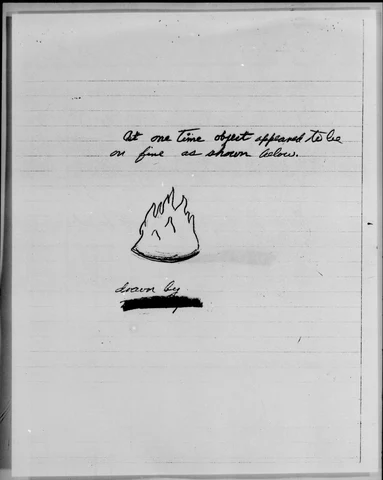 At one time object appeared to be
on fire as shown below.
drawn by